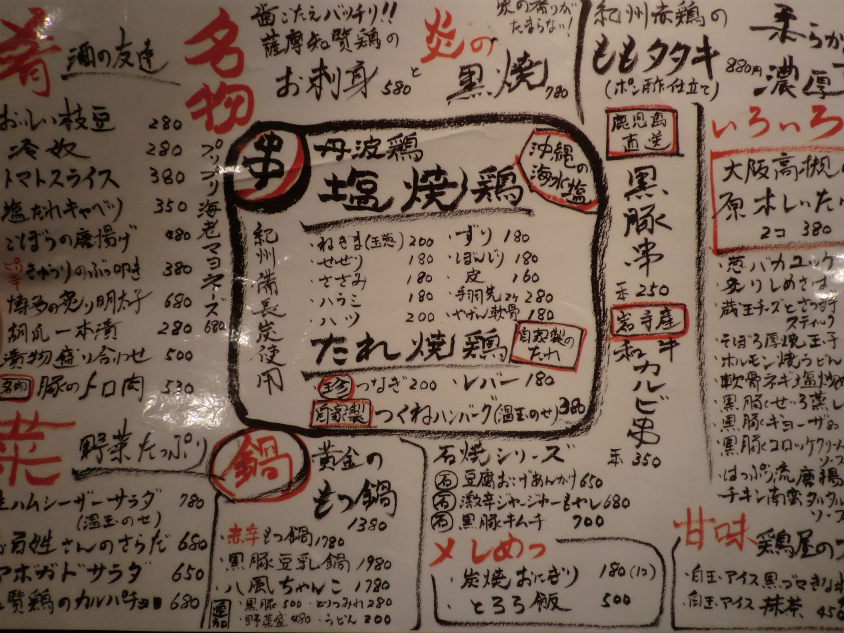 肴 酒の友達
おいしい枝豆 280
冷奴 280
トマトスライス 380
塩だれキャベツ 350
ごぼうの唐揚げ 480
ピリ辛 きゅうりのぶっ叩き 380
博多の炙り明太子 680
胡瓜一本漬 280
漬物盛り合わせ 500
名物 豚のトロ肉 530
名物
歯ごたえバッチリ!!
薩摩知覧鶏の
お刺身 580
プリプリ海老マヨネーズ 680
炭の香りが
たまらない!
炎の
黒焼 780
紀州赤鶏の
ももタタキ 880円
(ポン酢仕立て)
柔らか
濃厚
串
丹波鶏
塩焼鶏
沖縄の
海水塩
紀州備長炭使用
・ねぎま(玉葱) 200
・せせり 180
・ささみ 180
・ハラミ 180
・ハツ 200
・ずり 180
・ぼんじり 180
・皮 160
・手羽先 2ケ 280
・やげん軟骨 180
たれ焼鶏
自家製の
たれ
珍 つなぎ 200 ・レバー 180
自家製 つくねハンバーグ(温玉のせ) 380
鹿児島
直送
黒豚串
一本 250
岩手産
和牛カルビ串
一本 350
いろいろ
大阪高槻の
原木しいた
2コ 380
・葱バカユッケ
・炙りしめさば
・蔵王チーズとさつま芋
スティック
・そぼろ厚焼玉子
・ホルモン焼うどん
・軟骨ネギ塩炒め
・黒豚せいろ蒸し
・黒豚ギョーザ
・黒豚コロッケクリーム
ソース
・はっぷう流唐揚
・チキン南蛮タルタル
ソース
菜 野菜たっぷり
生ハムシーザーサラダ 780
(温玉のせ)
お百姓さんのさらだ 680
アボガドサラダ 650
知覧鶏のカルパチョ 680
鍋
黄金の
もつ鍋
1380
・赤辛もつ鍋 1780
・黒豚豆乳鍋 1980
・八風ちゃんこ 1780
追加 ・黒豚 500 ・とりつみれ 280
・野菜盛 480 ・うどん 200
石焼シリーズ
石 豆腐おこげあんかけ 650
石 激辛ジャージャーもやし 680
石 黒豚キムチ 700
メしめっ
・炭焼おにぎり 180(1コ)
・とろろ飯 500
甘味 鶏屋の
・白玉・アイス黒
・白玉・アイス抹茶 450